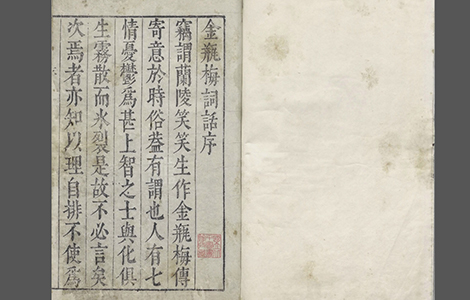 金瓶梅詞話序
竊謂蘭陵笑笑生作金瓶梅傳
寄意於時俗葢有謂也人有七
情憂鬱為甚上智之士與化俱
生霧散而氷裂是故不必言矣
次焉者亦知以理自排不使為